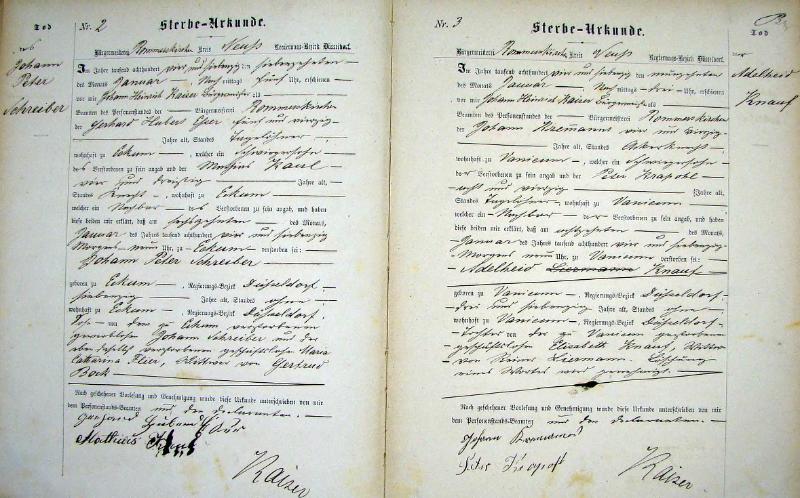 Tod
des
Johann
Peter
Schreiber
Nr. 2 Sterbe-Urkunde.
Bürgermeisterei Rommerskirchen Kreis Neuss Regierungs-Bezirk Düsseldorf.
Im Jahre tausend achthundert vier und siebenzig den siebenzehnten
des Monats Januar Nachmittags fünf Uhr, erschienen
vor mir Johann Heinrich Kaiser Bürgermeister als
Beamten des Personenstandes der Bürgermeisterei Rommerskirchen
der Gerhard Hubert fünf und vierzig
Jahre alt, Standes Tagelöhner
wohnhaft zu Eckum, welcher ein Schwiegersohn
des Verstorbenen zu sein angab und der Mathias
vier und dreissig Jahre alt,
Standes Knecht, wohnhaft zu Eckum
welcher ein Nachbar des Verstorbenen zu sein angab, und haben
diese beiden mir erklärt, daß am sechszehnten des Monats,
Januar des Jahres tausend achthundert vier und siebenzig
Morgens neun Uhr, zu Eckum verstorben sei:
Johann Peter Schreiber
geboren zu Eckum, Regierungs-Bezirk Düsseldorf
siebenzig Jahre alt, Standes ohne
wohnhaft zu Eckum, Regierungs-Bezirk Düsseldorf,
Sohn von dem zu Eckum verstorbenen
gewerblosen Johann Schreiber und der
ebendaselbst verstorbenen geschäftslosen Maria
Catharina Flier, Wittwer von Gertrud
Bock
Nach geschehener Vorlesung und Genehmigung wurde diese Urkunde unterschrieben von mir
dem Personenstands-Beamten und den Declaranten.
Gerhard Hubert
Mathias
Kaiser
Nr. 3 Sterbe-Urkunde.
Tod
der
Adelheid
Knauf
Bürgermeisterei Rommerskirchen Kreis Neuss Regierungs-Bezirk Düsseldorf.
Im Jahre tausend achthundert vier und siebenzig den neunzehnten
des Monats Januar Nachmittags drei Uhr, erschienen
vor mir Johann Heinrich Kaiser Bürgermeister als
Beamten des Personenstandes der Bürgermeisterei Rommerskirchen
der Johann vier und vierzig
Jahre alt, Standes Ackerknecht
wohnhaft zu Vanicum, welcher ein Schwiegersohn
der Verstorbenen zu sein angab und der Peter
acht und vierzig Jahre alt,
Standes Tagelöhner wohnhaft zu Vanicum
welcher ein Nachbar der Verstorbenen zu sein angab, und haben
diese beiden mir erklärt, daß am achtzehnten des Monats,
Januar des Jahres tausend achthundert vier und siebenzig
Morgens neun Uhr, zu Vanicum verstorben sei:
Adelheid Liermann Knauf
geboren zu Vanicum, Regierungs-Bezirk Düsseldorf
drei und siebenzig Jahre alt, Standes ohne
wohnhaft zu Vanicum, Regierungs-Bezirk Düsseldorf
Tochter von der zu Vanicum verstorbenen
geschäftslosen Elisabeth Knauf, Wittwe
von Reiner Liermann. Löschung
eines Wortes wird genehmigt.
Nach geschehener Vorlesung und Genehmigung wurde diese Urkunde unterschrieben von mir
dem Personenstands-Beamten und den Declaranten.
Johann
Peter
Kaiser